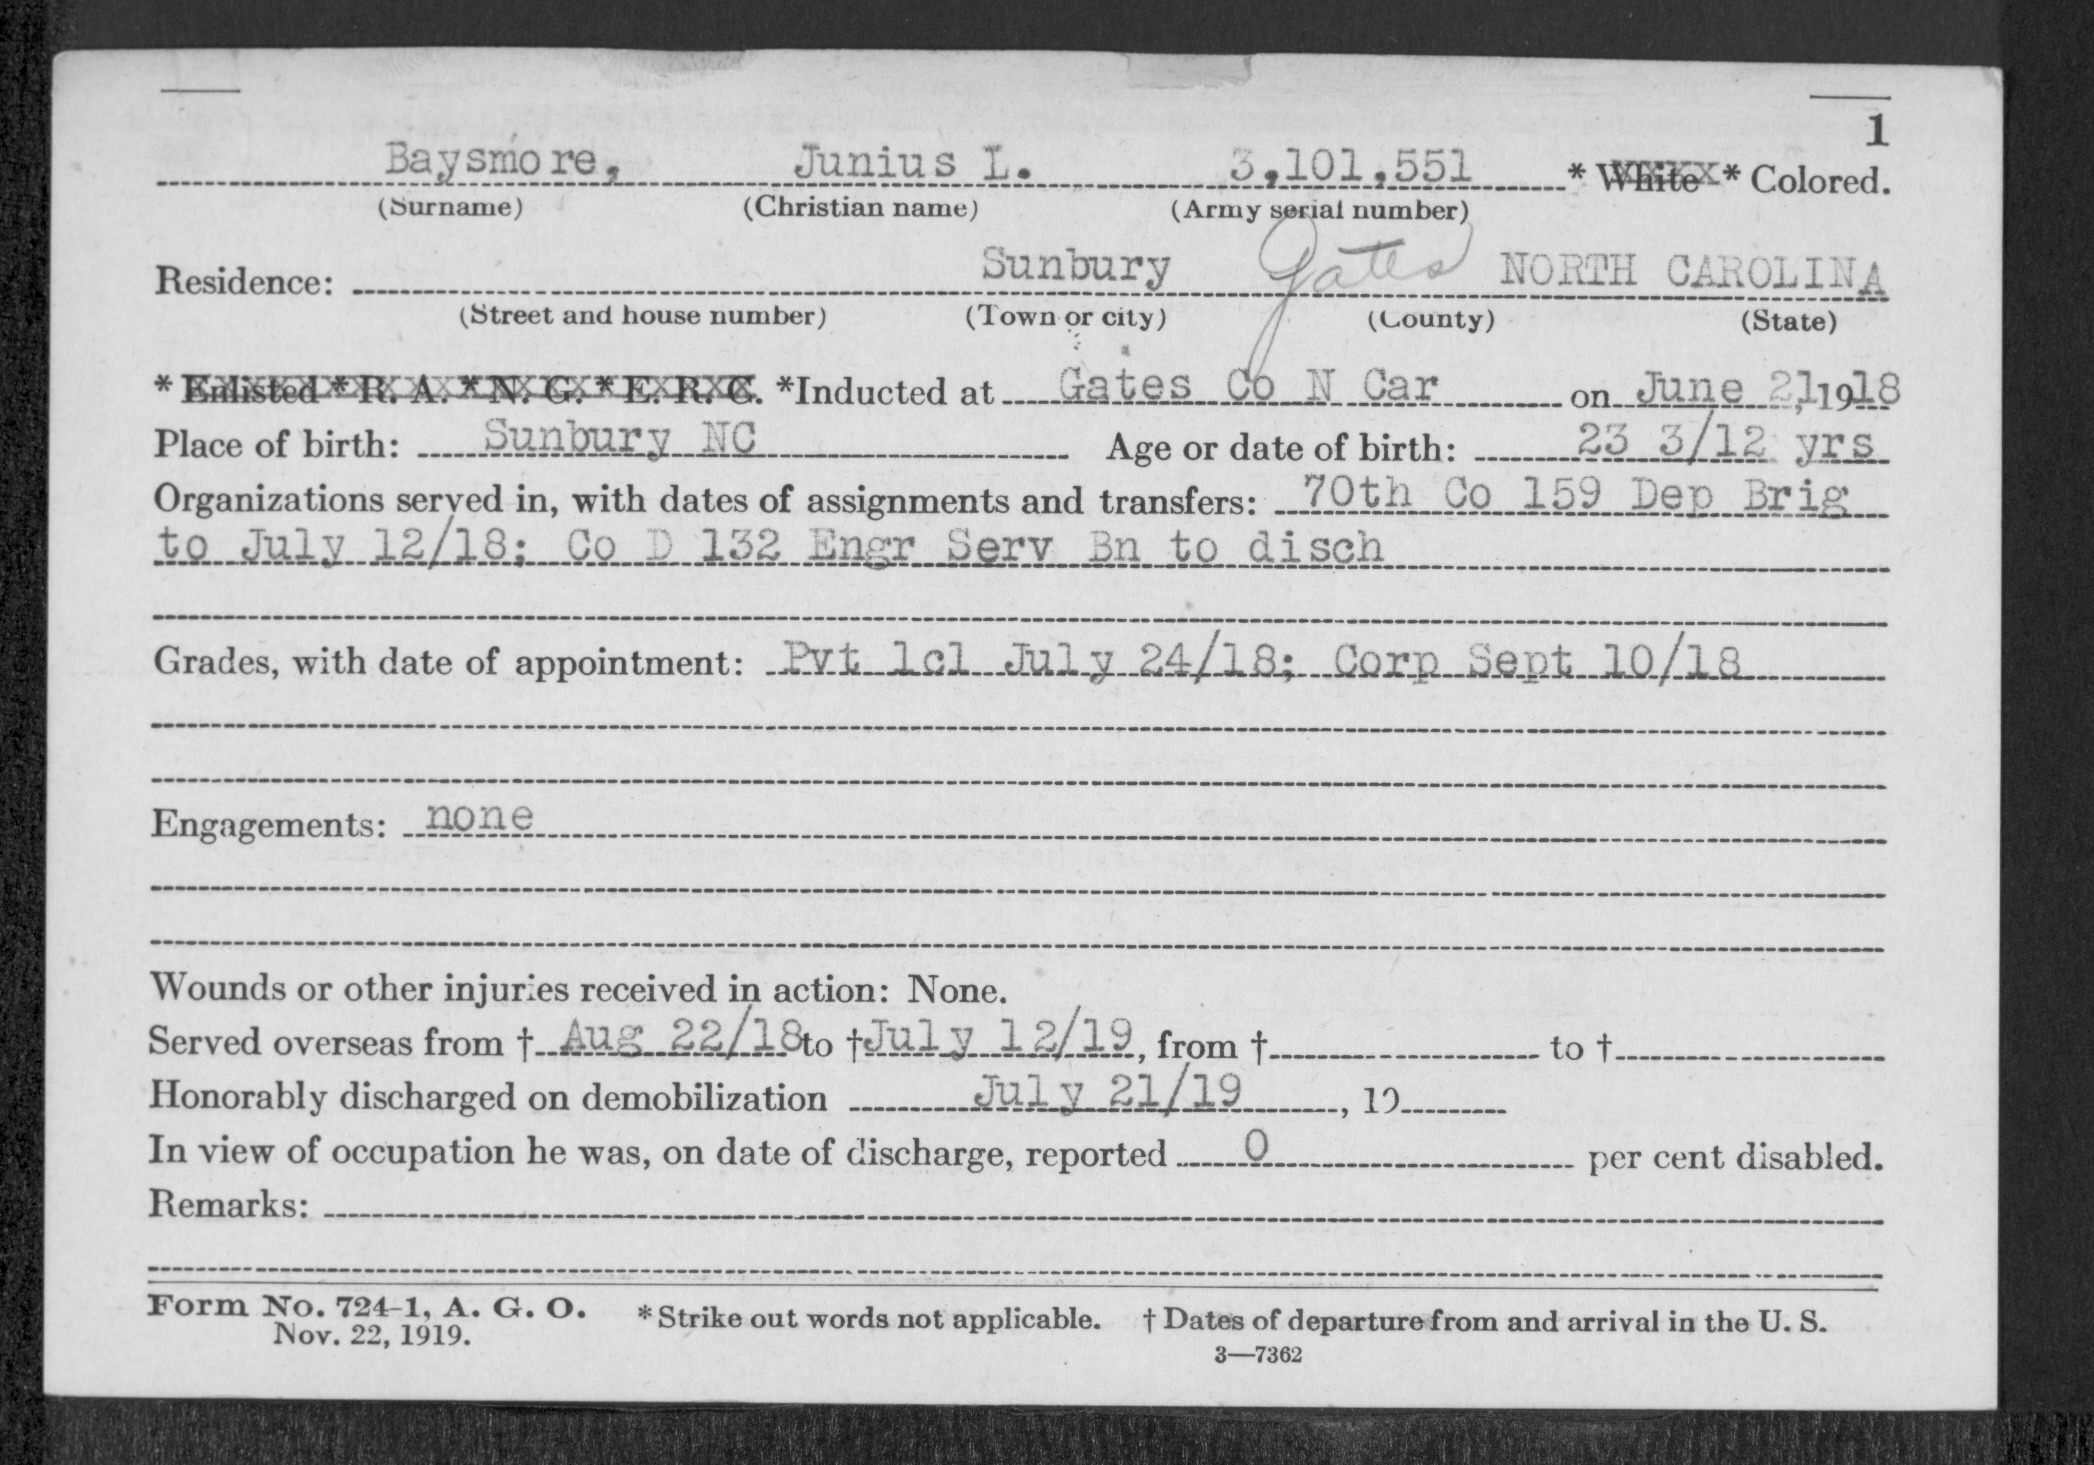 1
Baysmore, Junius L. 3,101,551 * White * Colored.
(Surname) (Christian name) (Army serial number)
Residence: Sunbury Gates NORTH CAROLINA
(Street and house number) (Town or city) (County) (State)
* Enlisted * R. A. * N. G. * E. R. C. *Inducted at Gates Co N Car on June 21, 1918
Place of birth: Sunbury NC Age or date of birth: 23 3/12 yrs
Organizations served in, with dates of assignments and transfers: 70th Co 159 Dep Brig
to July 12/18; Co D 132 Engr Serv Bn to disch
Grades, with date of appointment: Pvt 1cl July 24/18; Corp Sept 10/18
Engagements: none
Wounds or other injuries received in action: None.
Served overseas from † Aug 22/18 to † July 12/19, from † to †
Honorably discharged on demobilization July 21/19, 19
In view of occupation he was, on date of discharge, reported 0 per cent disabled.
Remarks:
Form No. 724-1, A. G. O. * Strike out words not applicable. † Dates of departure from and arrival in the U. S.
Nov. 22, 1919.
3—7362